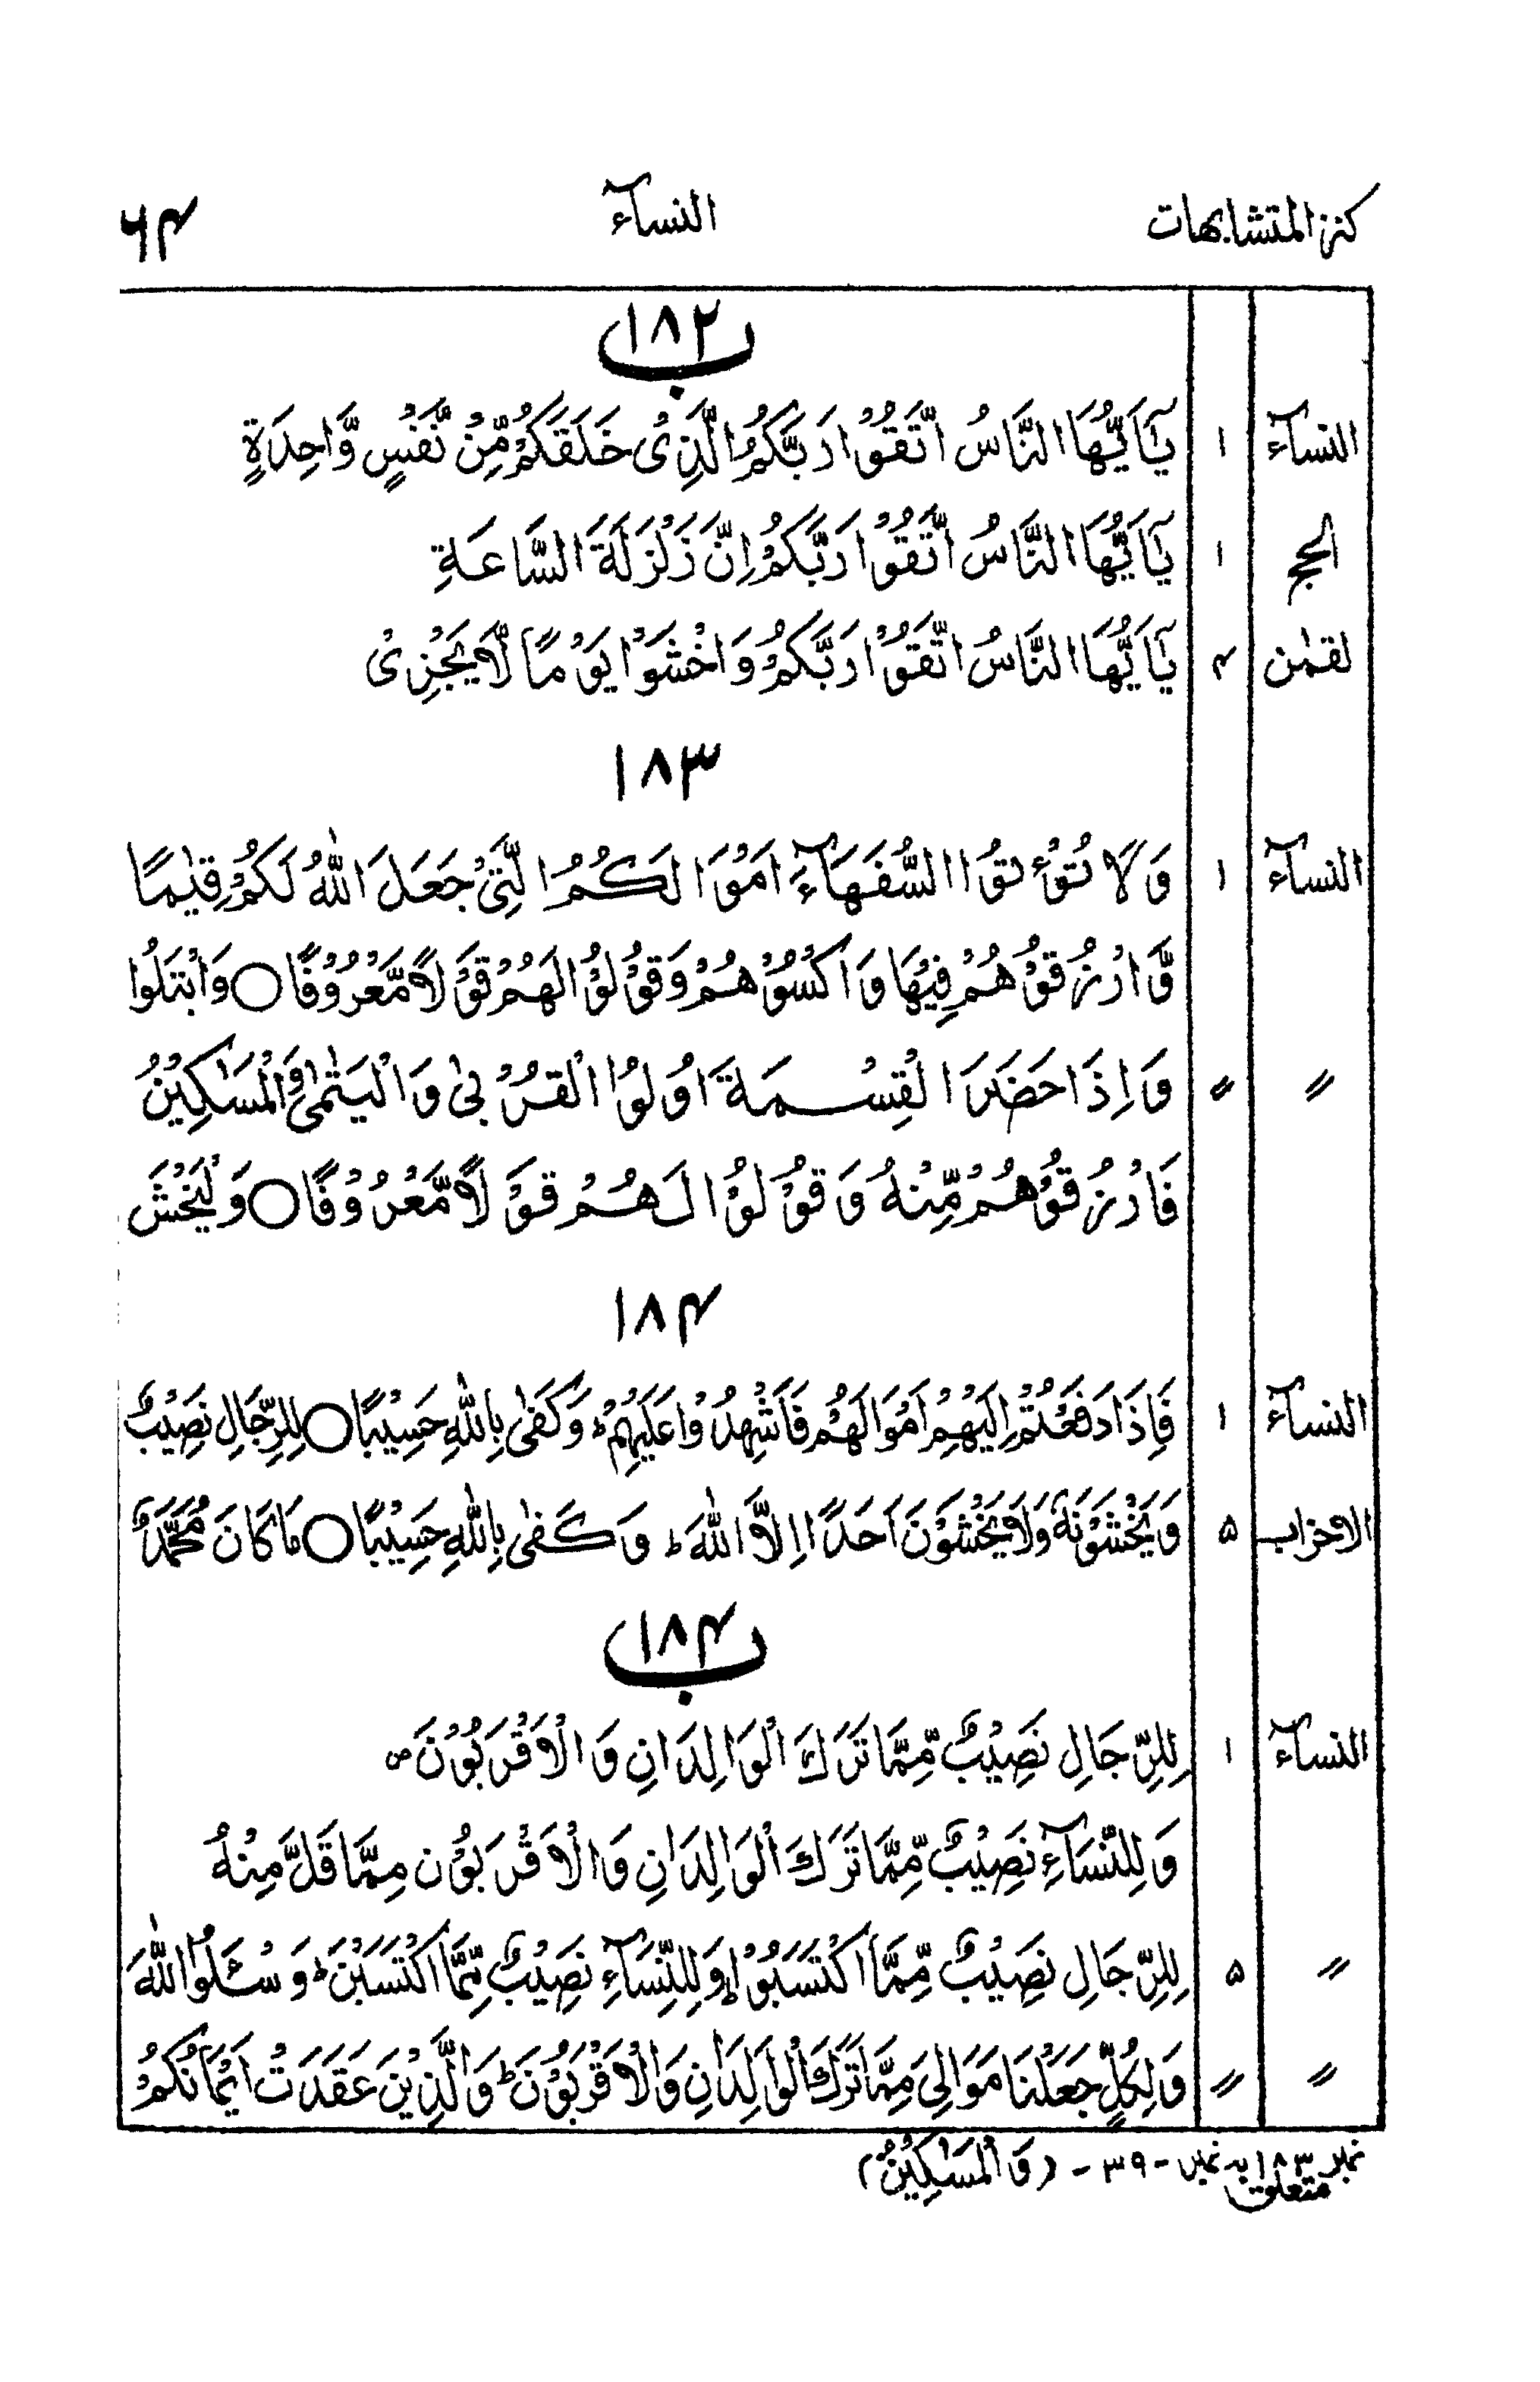 كنز المتشابهات النسآء ۶۴
۱۸۲ ب
النسآء ۱ يٰٓاَيُّهَا النَّاسُ اتَّقُوْا رَبَّكُمُ الَّذِيْ خَلَقَكُمْ مِّنْ نَّفْسٍ وَّاحِدَةٍ
الحج ۱ يٰٓاَيُّهَا النَّاسُ اتَّقُوْا رَبَّكُمْ اِنَّ زَلْزَلَةَ السَّاعَةِ
لقمٰن ۴ يٰٓاَيُّهَا النَّاسُ اتَّقُوْا رَبَّكُمْ وَاخْشَوْا يَوْمًا لَّا يَجْزِيْ
۱۸۳
النسآء ۱ وَلَا تُؤْتُوا السُّفَهَآءَ اَمْوَالَكُمُ الَّتِيْ جَعَلَ اللّٰهُ لَكُمْ قِيٰمًا
وَّارْزُقُوْهُمْ فِيْهَا وَاكْسُوْهُمْ وَقُوْلُوْا لَهُمْ قَوْلًا مَّعْرُوْفًا ○ وَابْتَلُوا
〃 〃 وَاِذَا حَضَرَ الْقِسْمَةَ اُولُوا الْقُرْبٰى وَالْيَتٰمٰى وَالْمَسٰكِيْنُ
فَارْزُقُوْهُمْ مِّنْهُ وَقُوْلُوْا لَهُمْ قَوْلًا مَّعْرُوْفًا ○ وَلْيَخْشَ
۱۸۴
النسآء ۱ فَاِذَا دَفَعْتُمْ اِلَيْهِمْ اَمْوَالَهُمْ فَاَشْهِدُوْا عَلَيْهِمْ ؕ وَكَفٰى بِاللّٰهِ حَسِيْبًا ○ لِلرِّجَالِ نَصِيْبٌ
الاحزاب ۵ وَيَخْشَوْنَهٗ وَلَا يَخْشَوْنَ اَحَدًا اِلَّا اللّٰهَ ؕ وَكَفٰى بِاللّٰهِ حَسِيْبًا ○ مَا كَانَ مُحَمَّدٌ
۱۸۴ ب
النسآء ۱ لِلرِّجَالِ نَصِيْبٌ مِّمَّا تَرَكَ الْوَالِدَانِ وَالْاَقْرَبُوْنَ ص
وَلِلنِّسَآءِ نَصِيْبٌ مِّمَّا تَرَكَ الْوَالِدَانِ وَالْاَقْرَبُوْنَ مِمَّا قَلَّ مِنْهُ
〃 ۵ لِلرِّجَالِ نَصِيْبٌ مِّمَّا اكْتَسَبُوْا ؕ وَلِلنِّسَآءِ نَصِيْبٌ مِّمَّا اكْتَسَبْنَ ؕ وَسْئَلُوا اللّٰهَ
〃 〃 وَلِكُلٍّ جَعَلْنَا مَوَالِيَ مِمَّا تَرَكَ الْوَالِدَانِ وَالْاَقْرَبُوْنَ ؕ وَالَّذِيْنَ عَقَدَتْ اَيْمَانُكُمْ
نمبر ۱۸۳ متعلق بہ نمبر - ۳۹ - (وَالْمَسٰكِيْنُ)